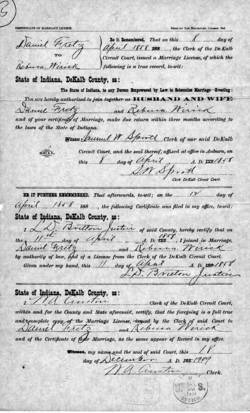 CERTIFICATE OF MARRIAGE LICENSE
Daniel Fretz
to
Rebeca Werick
Be it Remembered, That on this 8 day of
April 1858 188 , the Clerk of the DeKalb
Circuit Court, issued a Marriage License, of which the
following is a true record, to-wit:
State of Indiana, DeKalb County, ss:
The State of Indiana, to any Person Empowered by Law to Solemnize Marriage—Greeting:
You are hereby authorized to join together as HUSBAND AND WIFE
Daniel Fretz and Rebeca Werick
and of your certificate of Marriage, make due return within three months according to
the laws of the State of Indiana.
Witness, Samuel W. Sprott Clerk of our said DeKalb
Circuit Court, and the seal thereof, affixed at office in Auburn, this
8 day of April A. D. 1858
S. W. Sprott
Clerk DeKalb Circuit Court
BE IT FURTHER REMEMBERED, That afterwards, to-wit; on the 12 day of
April 1858 188 , the following Certificate was filed in my office, to-wit:
State of Indiana, DeKalb County, ss:
I, L. D. Britton Justice of said County, hereby certify that on
the 11th day of April A. D. 1858, I joined in Marriage,
Daniel Fretz and Rebeca Werick
by authority of law, and of a License from the Clerk of the DeKalb Circuit Court.
Given under my hand, this 11 day of April A. D. 1858
L. D. Britton Justice
State of Indiana, DeKalb County, ss:
I, W. A. Austin Clerk of the DeKalb Circuit Court,
within and for the County and State aforesaid, certify, that the foregoing is a full, true
and complete copy of the Marriage License, issued by the Clerk to
Daniel Fretz and Rebecca Werick
and of the Certificate of Marriage, as the same appear of Record in my office.
Witness, my name and the seal of said Court, this
December A. D.
W. A. Austin
Clerk